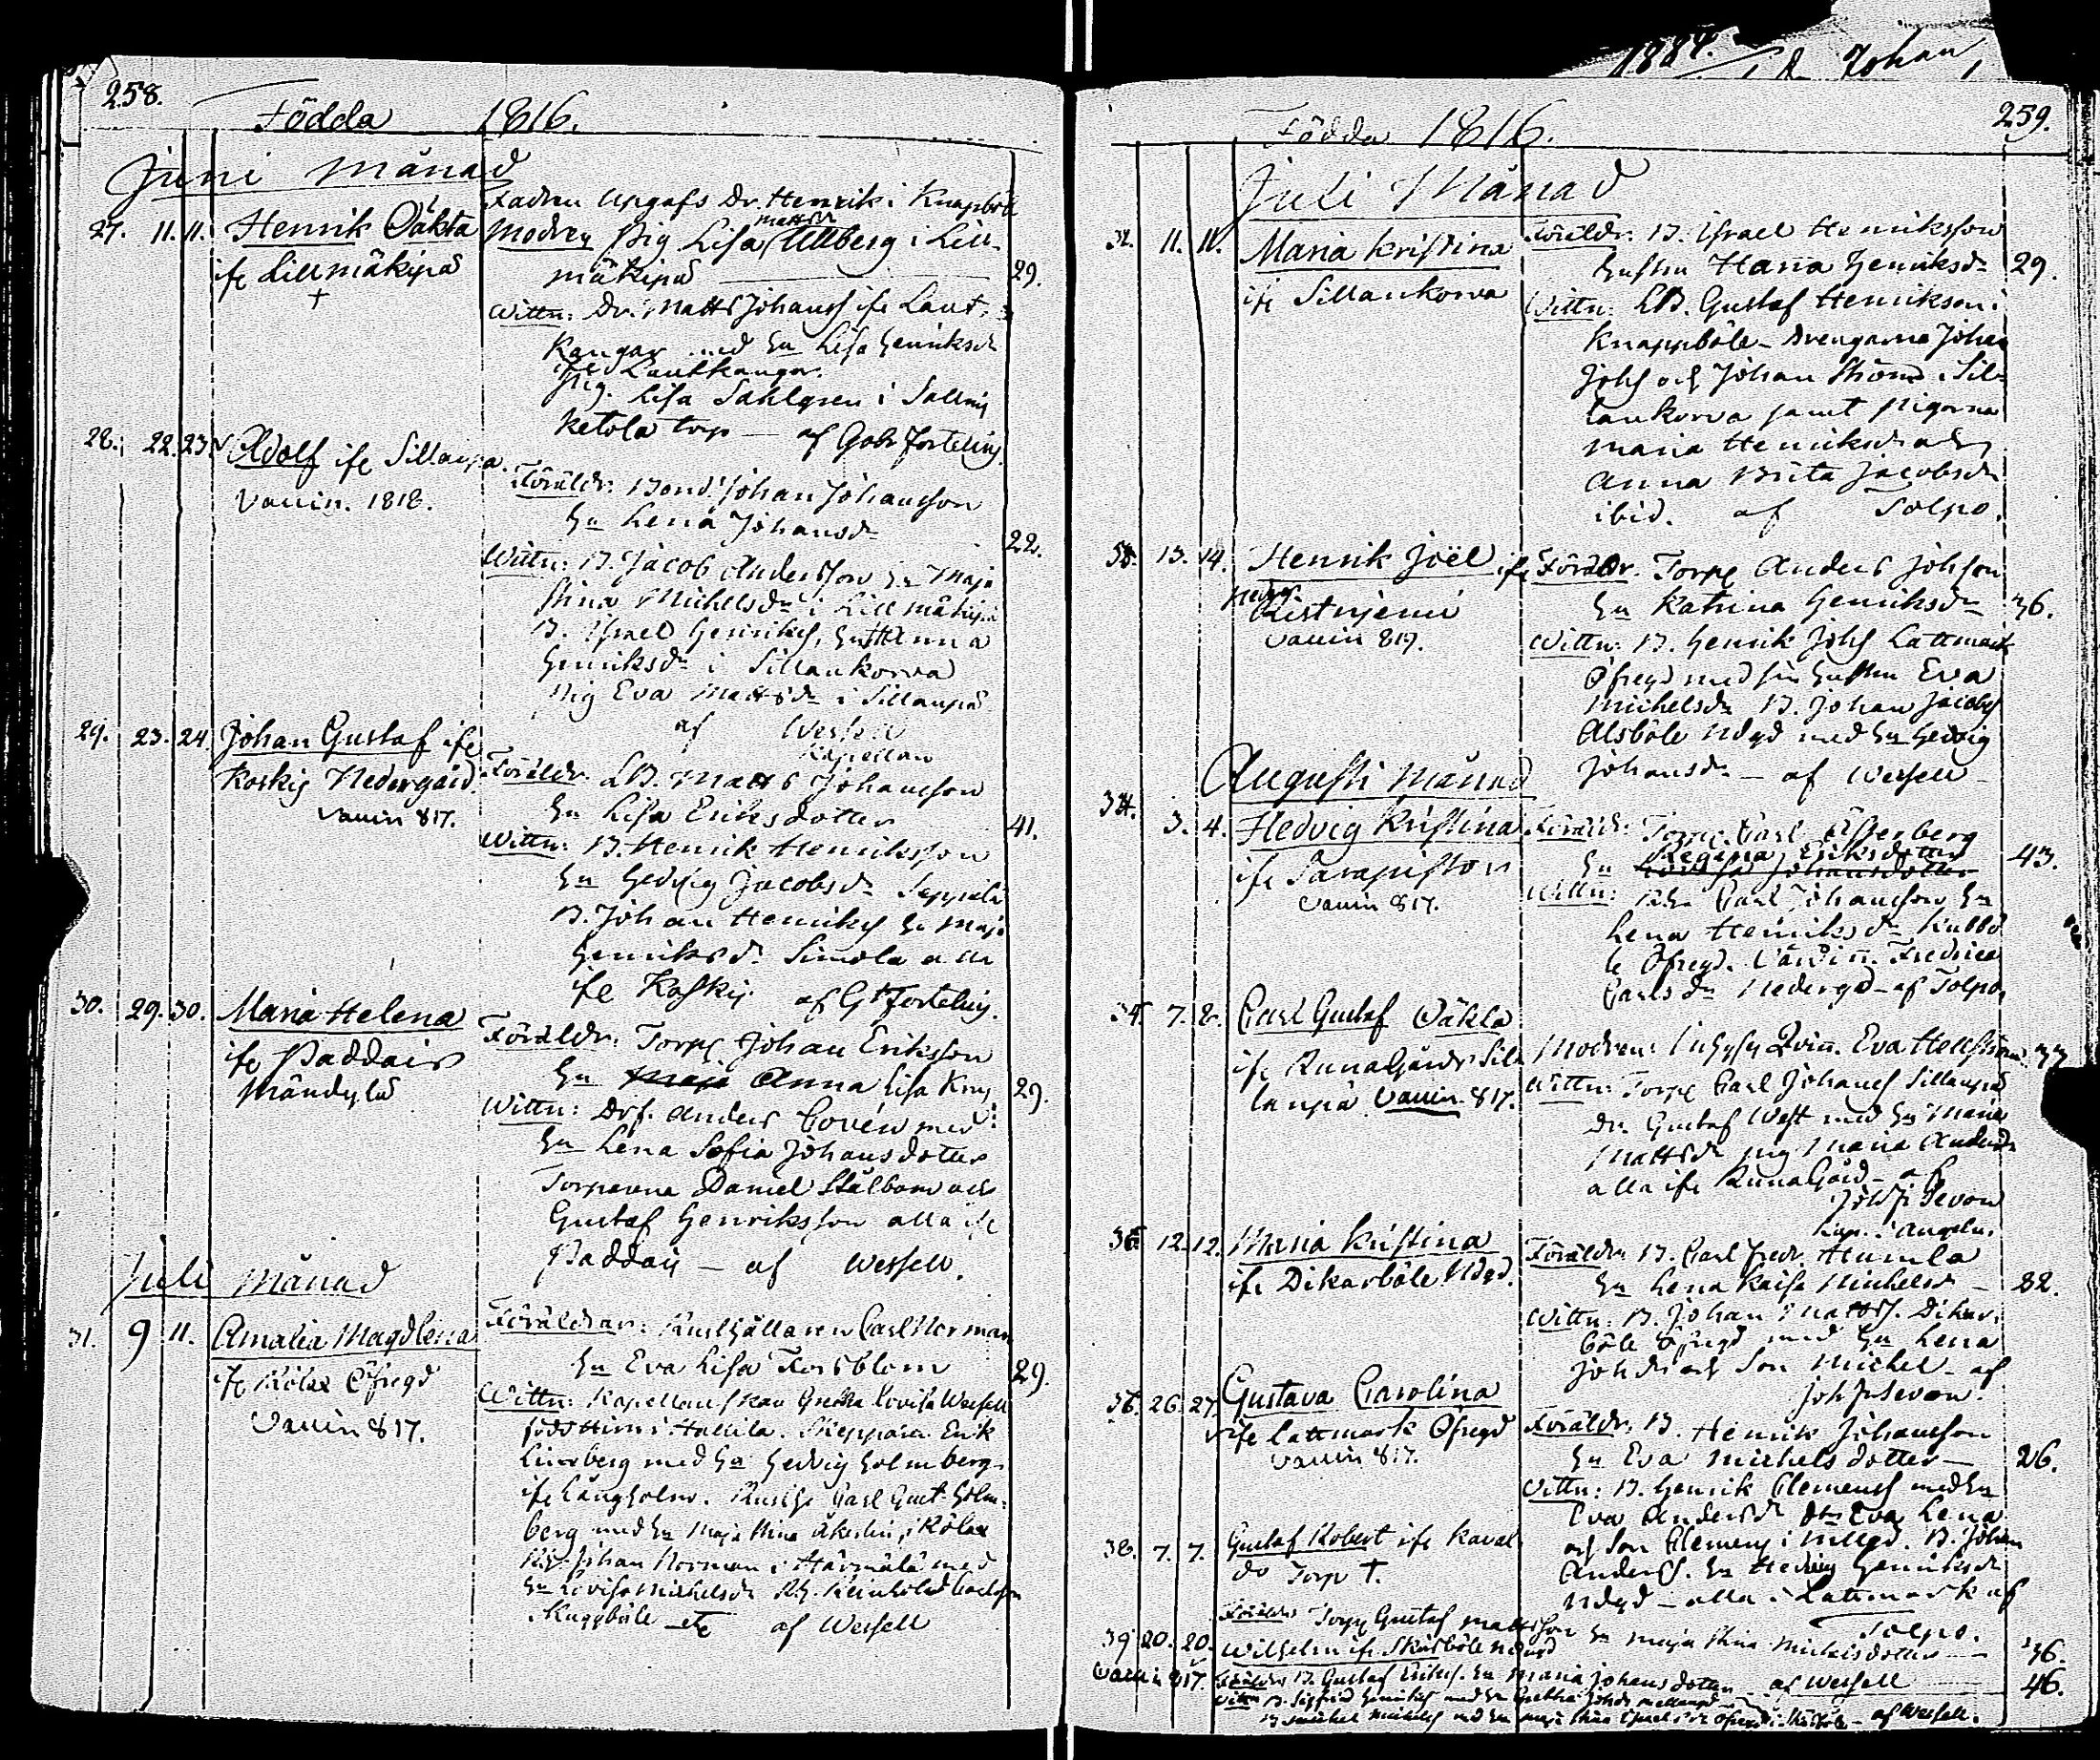 258.
Födda 1816.
Juni Månad
27. 11. 11. Henrik Oäkta
ifr Lillmäkipä
+
Fadren Upgafs Dr. Henrik i Knapböl
Modren Pig Lisa Mattsdr Ullberg i Lill-
mäkipä 29.
Wittn: Dr. Matts Johanss ifr Laut-
kangar med Hu Lisa Henriksdr
ifr Lautkangar.
Pig. Lisa Sahlgren i
Ketola torp — af Forteling
28. 22. 23. Adolf ifr Sillanpä
Vaccin. 1818.
Föräldr: Bond. Johan Johansson
Hu Lena Johansdr 22.
Wittn: B. Jacob Andersson Hu Maja
Stina Michelsdr i Lillmäkipä
B. Israel Henrikss, Hustr Anna
Henriksdr i Sillankorva
Pig Eva Mattsdr i Sillanpä
af Wessell
Kapellan
29. 23. 24. Johan Gustaf ifr
Koskis Nedergård
Vaccin 817.
Föräldr: LB. Matts Johansson
Hu Lisa Eriksdotter 41.
Wittn: B. Henrik Henriksson
Hu Hedvig Jacobsdr Seppälä
B. Johan Henrikss Hu Maja
Henriksdr. Simola alla
ifr Koskis af Forteling.
30. 29. 30. Maria Helena
ifr Paddais
Mändylä
Föräldr: Torp Johan Eriksson
Hu Anna Lisa 29.
Wittn: Anders med
Hu Lena Sofia Johansdotter
Torparne Daniel Stålbom och
Gustaf Henriksson alla ifr
Paddais — af Wessell.
Juli Månad
31. 9. 11. Amalia Magdlena
ifr Rölax Öfregd
Vaccin 817.
Föräldrar: Rusthållaren Carl Norman
Hu Eva Lisa Forsblom 29.
Wittn: Kapellansfrau Greta Lovisa Wessell
född Hirn i Hallila. Skepparn Erik
Lindberg med Hu Hedvig Holmberg
ifr Långholm. Rusth Carl Gust. Holm-
berg med Hu Maja Stina Åkerlin i Rölax
Rh. Johan Norman i Härmälä med
Hu Lovisa Michelsdr Rh. Reinhold
Skuggböle etc af Wessell
1884. Johan
259.
Födda 1816.
Juli Månad
32. 11. 11. Maria Kristina
ifr Sillankorva
Föräldr. B. Israel Henriksson
Hustru Hanna Henriksdr 29.
Wittn: LB. Gustaf Henriksson i
Knappböle — Drengarna Johan
Johss och Johan Ström i Sil-
lankorva samt Pigorna
Maria Henriksdr och
Anna Brita Jacobsdr
ibid. af Tolpo.
13. 14. Henrik Joël ifr
Kistnjemi
Vaccin 817.
Föräldr. Torp Anders Johsson
Hu Katrina Henriksdr 36.
Wittn: B. Henrik Johss Lattmark
Öfregd med sin Hustru Eva
Michelsdr B. Johan Jacobss
Alsböle Ndgd med Hu Hedvig
Johansdr — af Wessell
Augusti Månad
34. 3. 4. Hedvig Kristina
ifr
Vaccin 817.
Föräldr: Torp. Carl Österberg
Hu Regina Eriksdotter 43.
Wittn: Carl Johansson Hu
Lena Henriksdr Kubbö-
le Öfregd. Värdinn. Fredrica
Carlsdr Nedergd — af Tolpo
7. 8. Carl Gustaf Oäkta
ifr Runagårds Sil-
lanpä Vaccin 817.
Modren: Qvin. Eva Hellström 33
Wittn: Torp Carl Johanss Sillanpä
Dr. Gustaf West med Hu Maria
Mattsdr Pig Maria Andersdr
alla ifr Runagård — af
Joh. Pr. Sevon
Kap. i Angeln.
12. 12. Maria Kristina
ifr Dikarböle Ndgd.
Föräldr: B. Carl Fredr. Humla
Hu Lena Kaisa Michelsdr 32.
Wittn: B. Johan Mattss. Dikar-
böle Öfregd med Hu Lena
Johsdr och Son Michel — af
Joh Pr Sevon
26. 27. Gustava Carolina
ifr Lattmark Öfregd
Vaccin 817.
Föräldr. B. Henrik Johansson
Hu Eva Michelsdotter — 26.
Wittn: B. Henrik Clemenss med Hu
Eva Andersdr Dr Eva Lena
och Son Clemens i B. Johan
Anderss. Hu Hedvig Henriksdr
Ndgd — alla i Lattmark af
Tolpo.
38. 7. 7. Gustaf Robert ifr
Torp †.
Föräldr Torp Gustaf Mattsson Hu Maja Stina Michelsdotter — 36.
39 20. 20. Wilhelm ifr Skärböle Ndgd
Vaccin 817. Föräldr B. Gustaf Erikss. Hu Maria Johansdotter — af Wessell 46.
Wittn B. Sigfrid Henrikss med Hu Gretha Johsdr
B Michel Michelss med Hu Maja Stina — af Wessell.